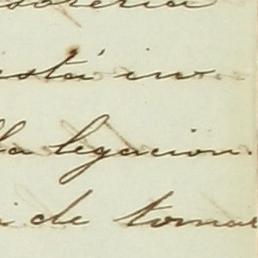 está in
la legacion.
i de tomar